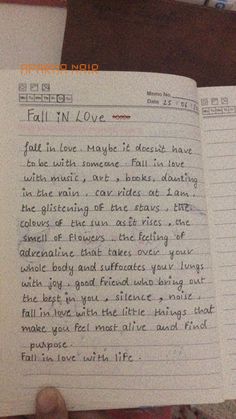 APARTO NOIR
Memo No.
Mo Tu We Th Fr Sa Su
Date 25 / 06 /
Fall IN LOve
fall in love. Maybe it doesn't have
to be with someone Fall in love
with music, art, books, dancing
in the rain, car rides at 2am.
the glistening of the stars, the
colours of the sun as it rises, the
smell of flowers. the feeling of
adrenaline that takes over your
whole body and suffocates your lungs
with joy, good friend who bring out
the best in you, silence, noise.
fall in love with the little things that
make you feel most alive and find
purpose.
Fall in love with life.